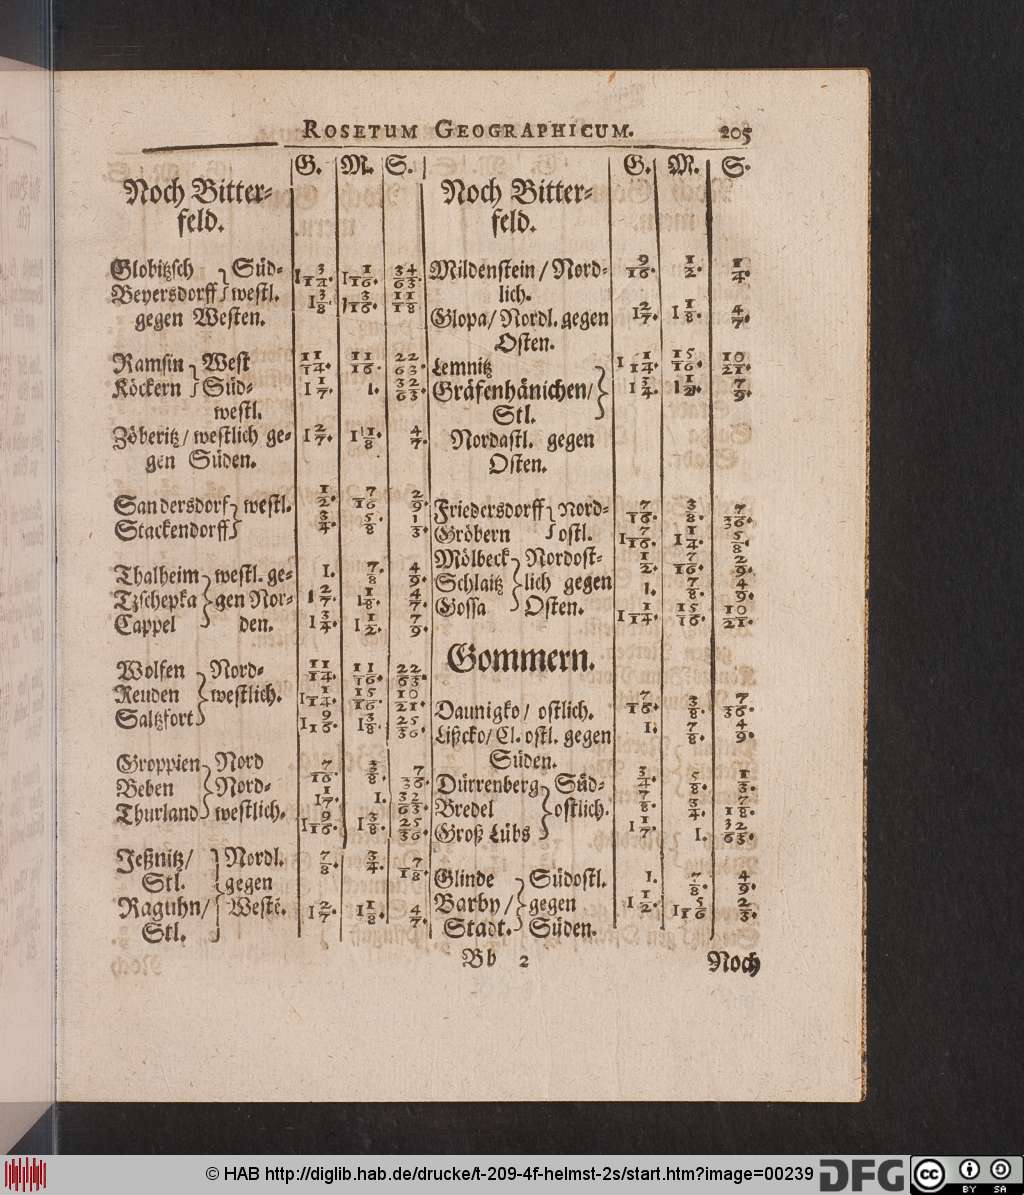 ROSETUM GEOGRAPHICUM. 205
G. M. S.
Noch Bitter-
feld.
Globitzsch } Süd- 1 3/14. 1 1/16. 34/63.
Beyersdorff } westl. 1 3/8. 1 3/16. 11/18
gegen Westen.
Ramsin } West 11/14. 11/16. 22/63.
Köckern } Süd- 1 1/7. 1. 32/63.
westl.
Zöberitz/ westlich ge- 1 2/7. 1 1/8. 4/7.
gen Süden.
Sandersdorf } westl. 1/2. 7/16 2/9.
Stackendorff } 3/4. 5/8 1/3.
Thalheim } westl. ge- 1. 7/8. 4/9.
Tzschepka } gen Nor- 1 2/7. 1 1/8. 4/7.
Cappel } den. 1 3/4. 1 1/2. 7/9.
Wolfen } Nord- 11/14. 11/16. 22/63.
Reuden } westlich. 1 1/14. 15/16. 10/21.
Saltzfort } 1 9/16. 1 3/8. 25/36.
Groppien } Nord 7/16. 3/8. 7/36.
Beben } Nord- 1 1/7. 1. 32/63.
Thurland } westlich. 1 9/16. 1 3/8. 25/36.
Jeßnitz/ } Nordl. 7/8. 3/4. 7/18.
Stl. } gegen
Raguhn/ } Westē. 1 2/7. 1 1/8. 4/7.
Stl. }
G. M. S.
Noch Bitter-
feld.
Mildenstein/ Nord- 9/16. 1/2. 1/4.
lich.
Glopa/ Nordl. gegen 1 2/7. 1 1/8. 4/7.
Osten.
Lemnitz } 1 1/14. 15/16. 10/21.
Gräfenhänichen/ } 1 3/4. 1 1/2. 7/9.
Stl. }
Nordastl. gegen
Osten.
Friedersdorff } Nord- 7/16. 3/8. 7/36.
Gröbern } ostl. 1 7/16. 1 1/4. 5/8.
Mölbeck } Nordost- 1/2. 7/16. 2/9.
Schlaitz } lich gegen 1. 7/8. 4/9.
Gossa } Osten. 1 1/14. 15/16. 10/21.
Gommern.
Daunigko/ ostlich. 7/16. 3/8. 7/36.
Lißcko/ Cl. ostl. gegen 1. 7/8. 4/9.
Süden.
Dürrenberg } Süd- 3/4. 5/8. 1/3.
Bredel } ostlich. 7/8. 3/4. 7/18.
Groß Lübs } 1 1/7. 1. 32/63.
Glinde } Südostl. 1. 7/8. 4/9.
Barby/ } gegen 1 1/2. 1 5/16 2/3.
Stadt. } Süden.
Bb 2 Noch
© HAB http://diglib.hab.de/drucke/t-209-4f-helmst-2s/start.htm?image=00239 DFG cc BY SA